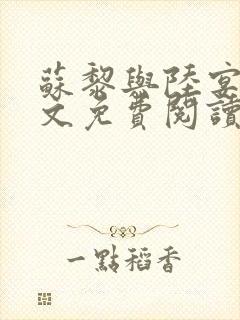 蘇黎與陸宴
文免費閱讀
一點稻香